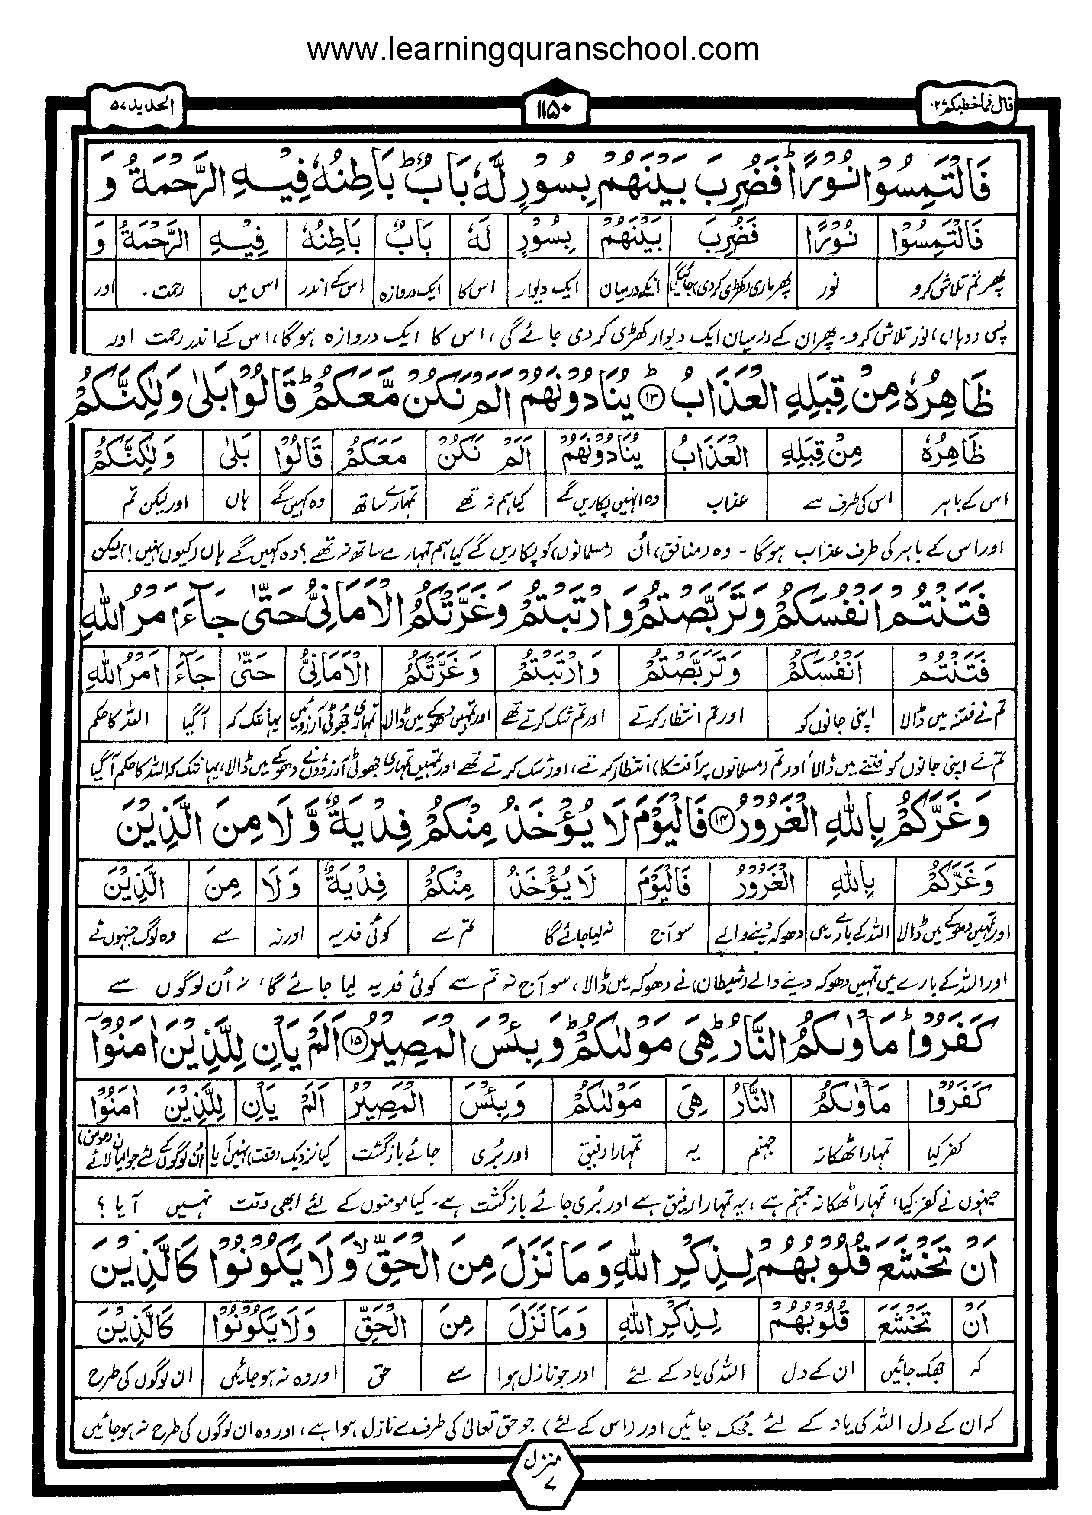 www.learningquranschool.com
قال فما خطبکم ۲۷
۱۱۵۰
الحدید ۵۷
فَالْتَمِسُوْا نُوْرًا ؕ فَضُرِبَ بَیْنَهُمْ بِسُوْرٍ لَّهٗ بَابٌ ؕ بَاطِنُهٗ فِیْهِ الرَّحْمَةُ وَ
فَالْتَمِسُوْا نُوْرًا فَضُرِبَ بَیْنَهُمْ بِسُوْرٍ لَهٗ بَابٌ بَاطِنُهٗ فِیْهِ الرَّحْمَةُ وَ
پھر تم تلاش کرو نور پھر ماری (کھڑی کردی) جائیگی انکے درمیان ایک دیوار اس کا ایک دروازہ اس کے اندر اس میں رحمت۔ اور
پس (وہاں) نور تلاش کرو۔ پھر ان کے درمیان ایک دیوار کھڑی کر دی جائے گی، اس کا ایک دروازہ ہوگا، اس کے اندر رحمت اور
ظَاهِرُهٗ مِنْ قِبَلِهِ الْعَذَابُ ؕ ۱۳ یُنَادُوْنَهُمْ اَلَمْ نَكُنْ مَّعَكُمْ ؕ قَالُوْا بَلٰی وَلٰكِنَّكُمْ
ظَاهِرُهٗ مِنْ قِبَلِهِ الْعَذَابُ یُنَادُوْنَهُمْ اَلَمْ نَكُنْ مَعَكُمْ قَالُوْا بَلٰی وَلٰكِنَّكُمْ
اس کے باہر اس کی طرف سے عذاب وہ انہیں پکاریں گے کیا ہم نہ تھے تمہارے ساتھ وہ کہیں گے ہاں اور لیکن تم
اور اس کے باہر کی طرف عذاب ہوگا۔ وہ (منافق) اُن (مسلمانوں) کو پکاریں گے کیا ہم تمہارے ساتھ نہ تھے؟ وہ کہیں گے ہاں (کیوں نہیں!) لیکن
فَتَنْتُمْ اَنْفُسَكُمْ وَتَرَبَّصْتُمْ وَارْتَبْتُمْ وَغَرَّتْكُمُ الْاَمَانِیُّ حَتّٰی جَآءَ اَمْرُ اللّٰهِ
فَتَنْتُمْ اَنْفُسَكُمْ وَتَرَبَّصْتُمْ وَارْتَبْتُمْ وَغَرَّتْكُمُ الْاَمَانِیُّ حَتّٰی جَآءَ اَمْرُ اللّٰهِ
تم نے فتنہ میں ڈالا اپنی جانوں کو اور تم انتظار کرتے اور تم شک کرتے تھے اور تمہیں دھوکے میں ڈالا تمہاری جھوٹی آرزوئیں یہانتک کہ آگیا اللہ کا حکم
تم نے اپنی جانوں کو فتنے میں ڈالا اور تم (مسلمانوں پر آفت کا) انتظار کرتے، اور شک کرتے تھے اور تمہیں تمہاری جھوٹی آرزوؤں نے دھوکے میں ڈالا، یہانتک کہ اللہ کا حکم آ گیا
وَغَرَّكُمْ بِاللّٰهِ الْغَرُوْرُ ۱۴ فَالْیَوْمَ لَا یُؤْخَذُ مِنْكُمْ فِدْیَةٌ وَّلَا مِنَ الَّذِیْنَ
وَغَرَّكُمْ بِاللّٰهِ الْغَرُوْرُ فَالْیَوْمَ لَا یُؤْخَذُ مِنْكُمْ فِدْیَةٌ وَلَا مِنَ الَّذِیْنَ
اور تمہیں دھوکے میں ڈالا اللہ کے بارے میں دھوکہ دینے والے سو آج نہ لیا جائے گا تم سے کوئی فدیہ اور نہ سے وہ لوگ جنہوں نے
اور اللہ کے بارے میں تمہیں دھوکہ دینے والے (شیطان) نے دھوکہ میں ڈالا، سو آج نہ تم سے کوئی فدیہ لیا جائے گا، نہ اُن لوگوں سے
كَفَرُوْا ؕ مَاْوٰىكُمُ النَّارُ ؕ هِیَ مَوْلٰىكُمْ ؕ وَبِئْسَ الْمَصِیْرُ ۱۵ اَلَمْ یَاْنِ لِلَّذِیْنَ اٰمَنُوْۤا
كَفَرُوْا مَاْوٰىكُمُ النَّارُ هِیَ مَوْلٰىكُمْ وَبِئْسَ الْمَصِیْرُ اَلَمْ یَاْنِ لِلَّذِیْنَ اٰمَنُوْا
کفر کیا تمہارا ٹھکانہ جہنم یہ تمہارا رفیق اور بُری جائے بازگشت کیا نزدیک (وقت) نہیں آیا اُن لوگوں کے لئے جو ایمان لائے (مومن)
جنہوں نے کفر کیا، تمہارا ٹھکانہ جہنم ہے، یہ تمہارا رفیق ہے اور بُری جائے بازگشت ہے۔ کیا مومنوں کے لئے ابھی وقت نہیں آیا؟
اَنْ تَخْشَعَ قُلُوْبُهُمْ لِذِكْرِ اللّٰهِ وَمَا نَزَلَ مِنَ الْحَقِّ ۙ وَلَا یَكُوْنُوْا كَالَّذِیْنَ
اَنْ تَخْشَعَ قُلُوْبُهُمْ لِذِكْرِ اللّٰهِ وَمَا نَزَلَ مِنَ الْحَقِّ وَلَا یَكُوْنُوْا كَالَّذِیْنَ
کہ جھک جائیں ان کے دل اللہ کی یاد کے لئے اور جو نازل ہوا سے حق اور وہ نہ ہو جائیں ان لوگوں کی طرح
کہ ان کے دل اللہ کی یاد کے لئے جھک جائیں اور (اس کے لئے) جو حق تعالیٰ کی طرف سے نازل ہوا ہے، اور وہ ان لوگوں کی طرح نہ ہو جائیں
منزل ۷